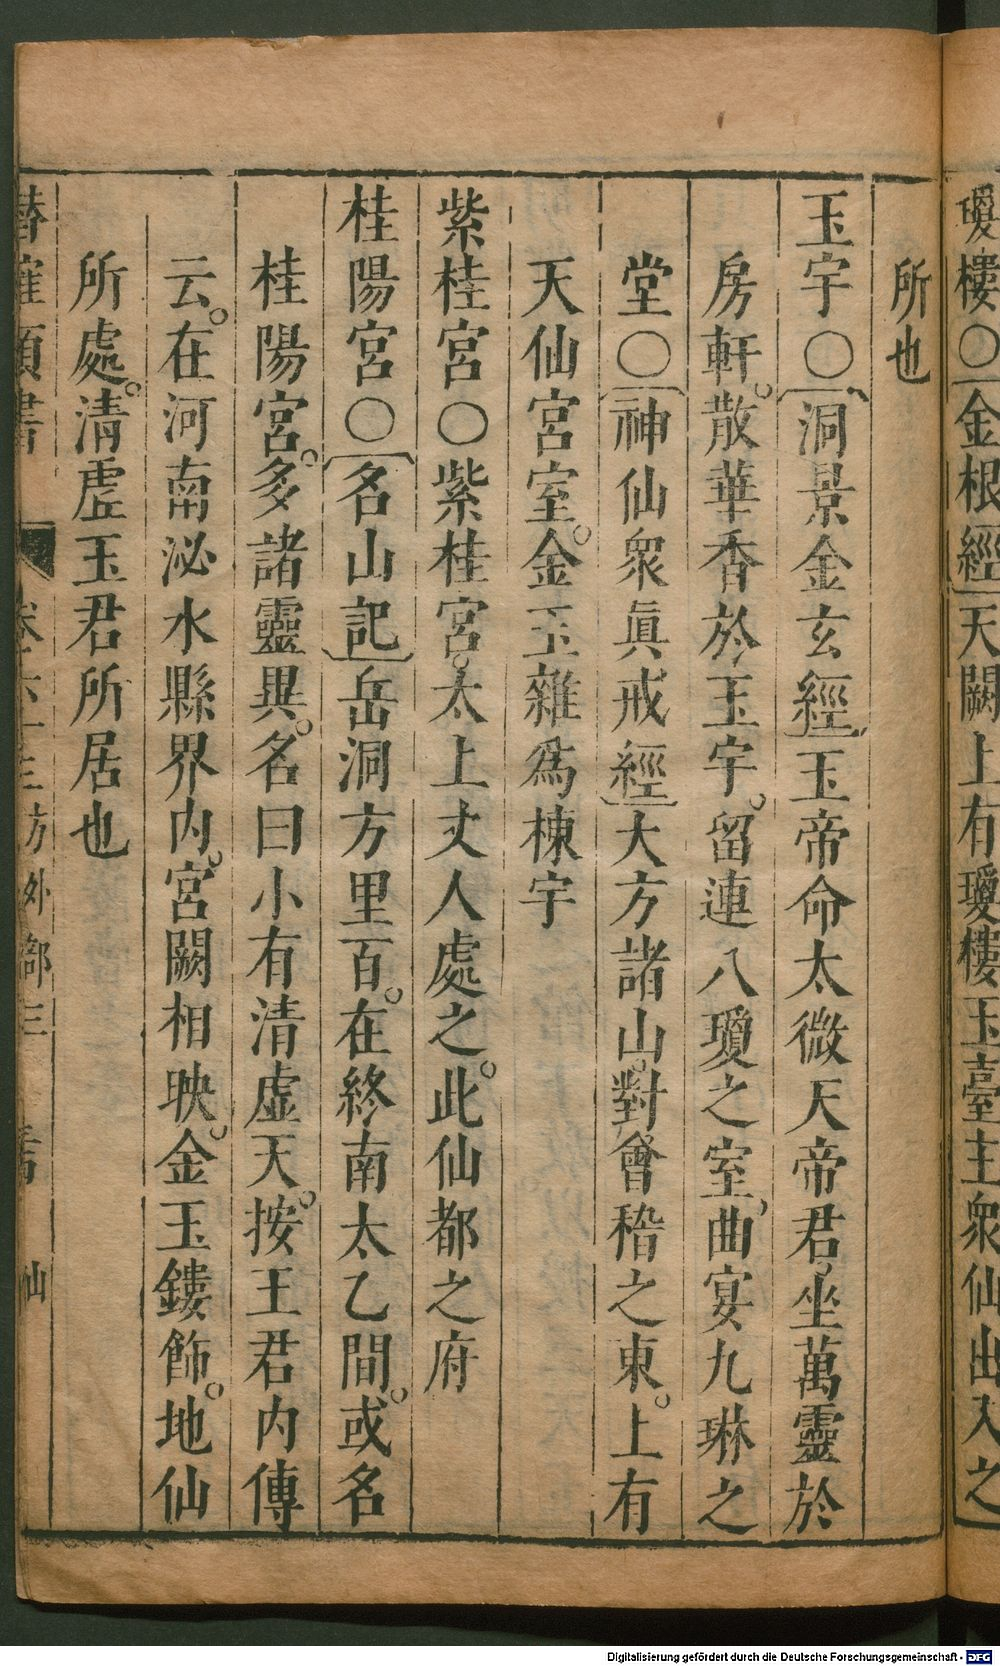 瓊樓○金根經天闕上有瓊樓玉臺主衆仙出入之
所也
玉宇○洞景金玄經玉帝命太微天帝君坐萬靈於
房軒。散華香於玉宇。留連八瓊之室。曲宴九琳之
堂○神仙衆眞戒經大方諸山。對會稽之東。上有
天仙宮室。金玉雜爲棟宇
紫桂宮○紫桂宮。太上丈人處之。此仙都之府
桂陽宮○名山記岳洞方里百。在終南太乙間。或名
桂陽宮。多諸靈異。名曰小有清虛天。按王君内傳
云。在河南泌水縣界内。宮闕相映。金玉鏤飾。地仙
所處。清虛玉君所居也
潛確類書
方外部三
仙
Digitalisierung gefördert durch die Deutsche Forschungsgemeinschaft - DFG